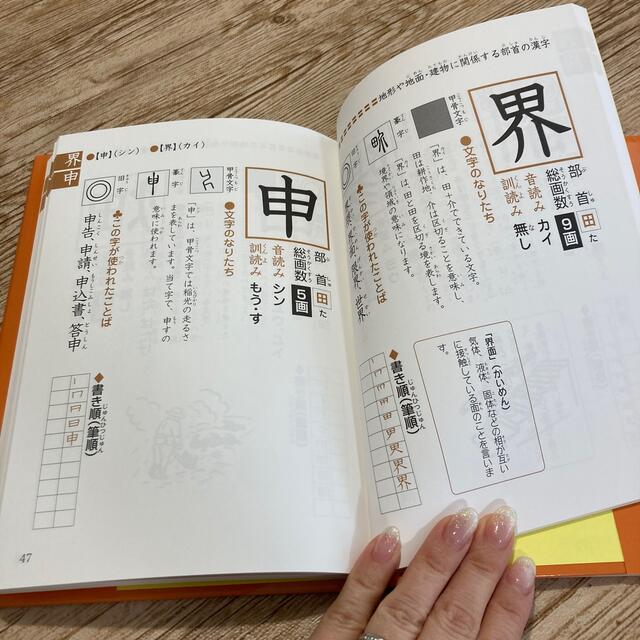 地形や地面・建物に関係する部首の漢字
界
部首 田 た
総画数 9画
音読み カイ
訓読み 無し
甲骨文字
篆字
旧字
●文字のなりたち
「界」は、田+介でできている文字。
田は耕作地、介は区切ることを意味し、
「界」は田と田を区切る境を表します。
境界や領域の意味になります。
♣この字が使われたことば
限界、世界
◆書き順(筆順)
「界面」(かいめん)
気体、液体、固体などの相が互い
に接触している面のことを言いま
す。
界申
●【申】(シン) ●【界】(カイ)
申
部首 田 た
総画数 5画
音読み シン
訓読み もう・す
甲骨文字
篆字
旧字
●文字のなりたち
「申」は、甲骨文字では稲光の走るさ
まを表しています。当て字で、申すの
意味に使われます。
♣この字が使われたことば
申告、申請、申込書、答申
◆書き順(筆順)
47